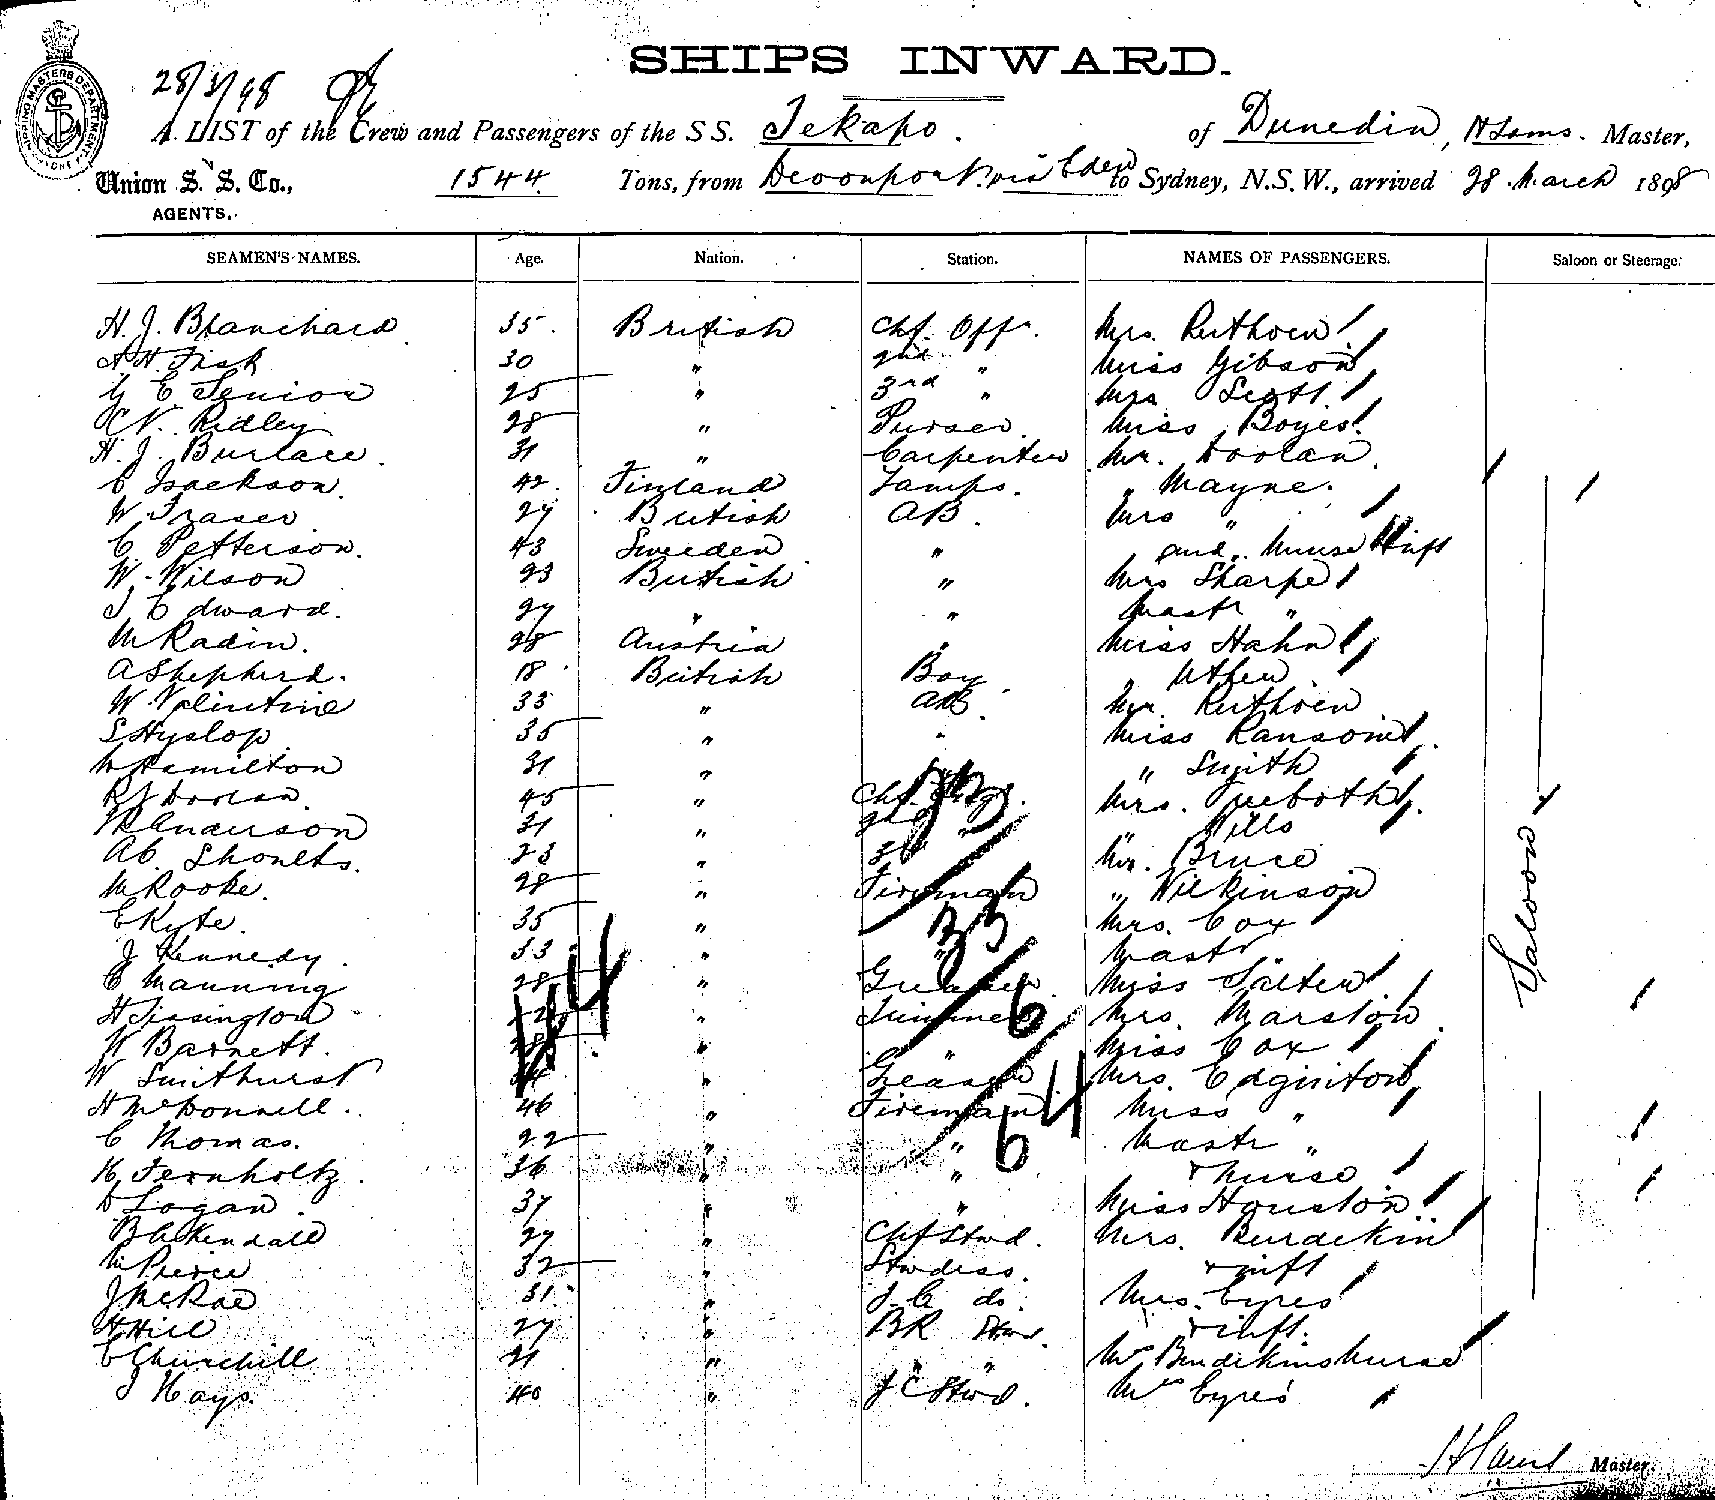 SHIPS INWARD.
28/3/98
A LIST of the Crew and Passengers of the SS. Tekapo. of Dunedin, Master,
Union S. S. Co., 1544 Tons, from Devonport via Eden to Sydney, N.S.W., arrived 28 March 1898
AGENTS.
SEAMEN'S NAMES. Age. Nation. Station. NAMES OF PASSENGERS. Saloon or Steerage.
H. J. Blanchard 35. British Chf. Off. Mrs. Ruthven
A H. Fisk 30 " 2nd " Miss Gibson
G E Senior 25 " 3rd " Mrs Scott
C N. Ridley 28 " Purser. Miss Boyes
H. J. Burlace. 31 " Carpenter Mr. Doolan
C Isackson. 42. Finland Lamps. " Mayne.
W. Fraser 27 British AB. Mrs "
C. Petterson. 43 Sweeden " and Nurse & Inft
W. Wilson 23 British " Mrs Sharpe
J Edward. 27 " " Mastr "
M Radin. 28 Austria " Miss Hahn
A Shepherd. 18 British Boy " Uther
W. Valentine 33 " AB. Mr. Ruthven
S Hyslop 35 " " Miss Ransom
W Hamilton 31 " " " Smith
R J Doolan. 45 " Chf. Mrs.
W Anderson 31 " 2nd " " Wills
A C. Shoults. 23 " 3rd Mr. Bruce
M Rooke. 28 " Fireman " Wilkinson
E Kyte. 35 " " Mrs. Cox
J Kennedy. 33 " " Mastr "
C Manning 28 " Greaser Miss Salter
H Tissington " Trimmer Mrs. Marston
W Barnett. " " Miss Cox
W Smithurst " Greaser Mrs. Edginton
H McDonnell. 46 " Fireman Miss "
C Thomas. 22 " " Mastr "
H. Fernholtz. 36 " " & Nurse
D Logan. 37 " " Miss Houston
Blackendale 27 " Chf Stwd. Mrs. Burdekin
M Pierce 32 " Stwdess. & inft
J McRae 31. " J. C do. Mrs. Eyres
H Hill 27 " BR Stw. & inft.
C Churchill 21 " " " Mrs Burdekins Nurse
J Hays. 40 " J C Stwd. Mrs Eyres "
Saloon
Master.